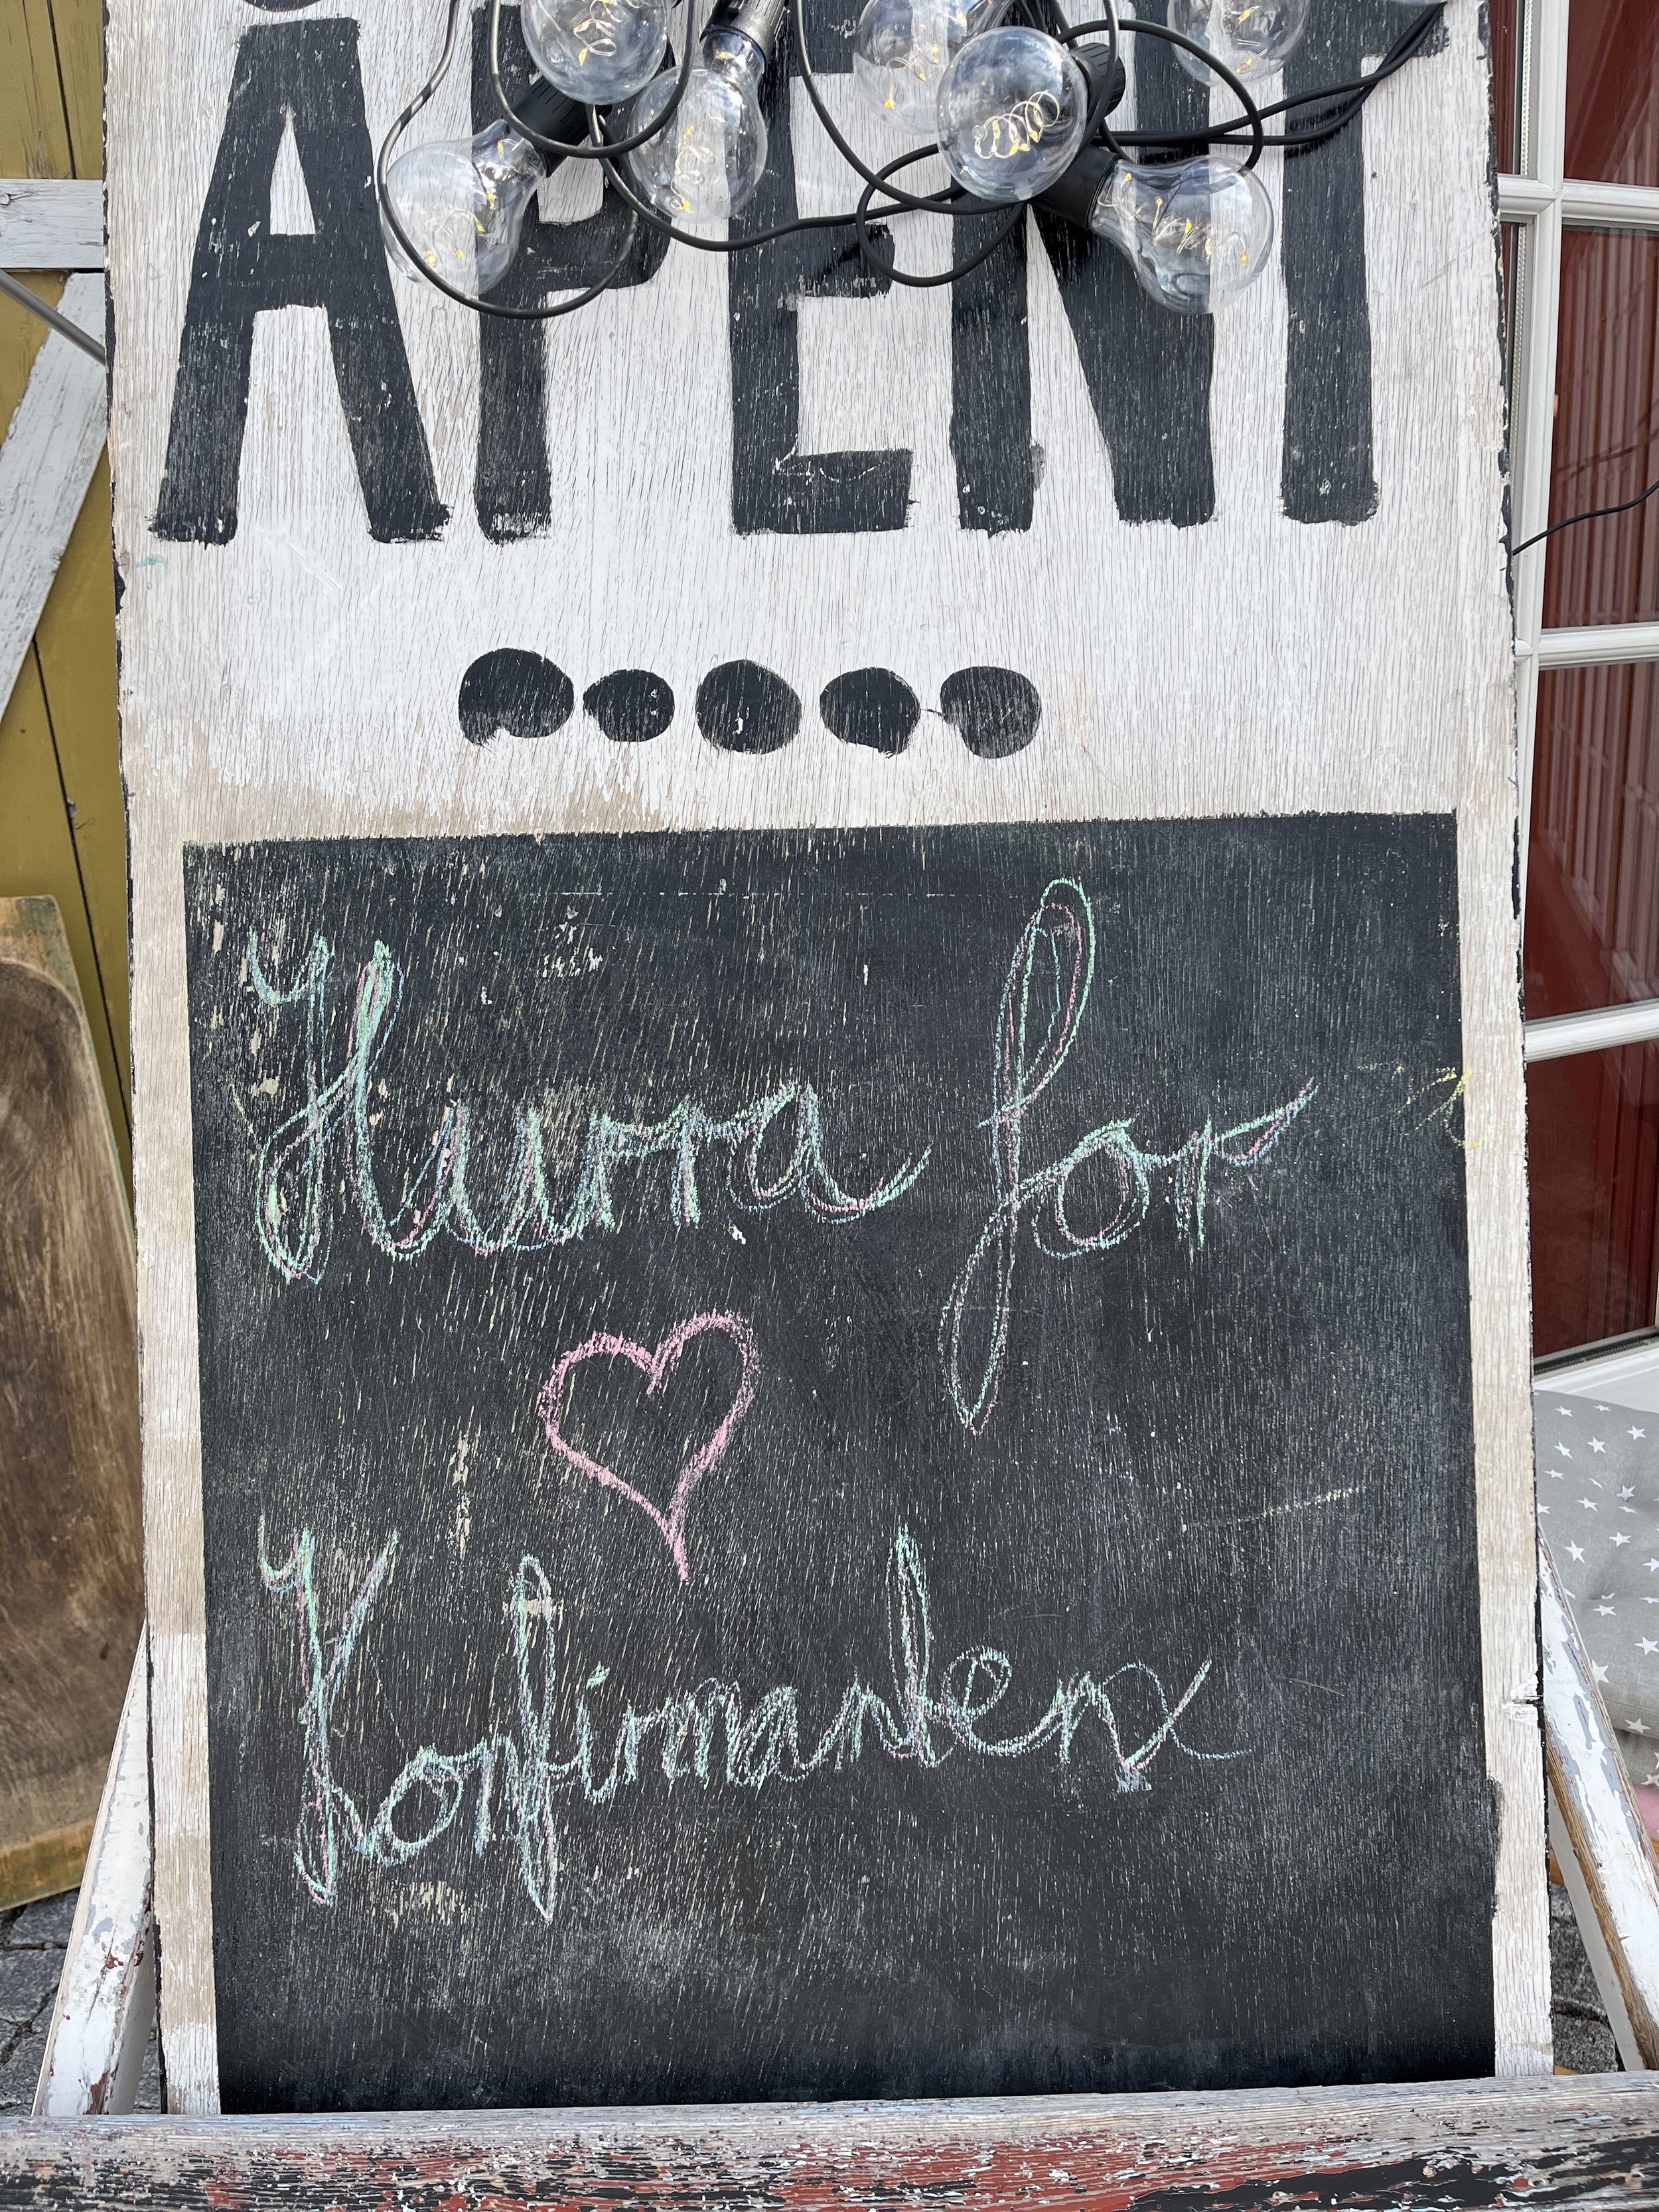 ÅPENT
Hurra for
Konfirmanten